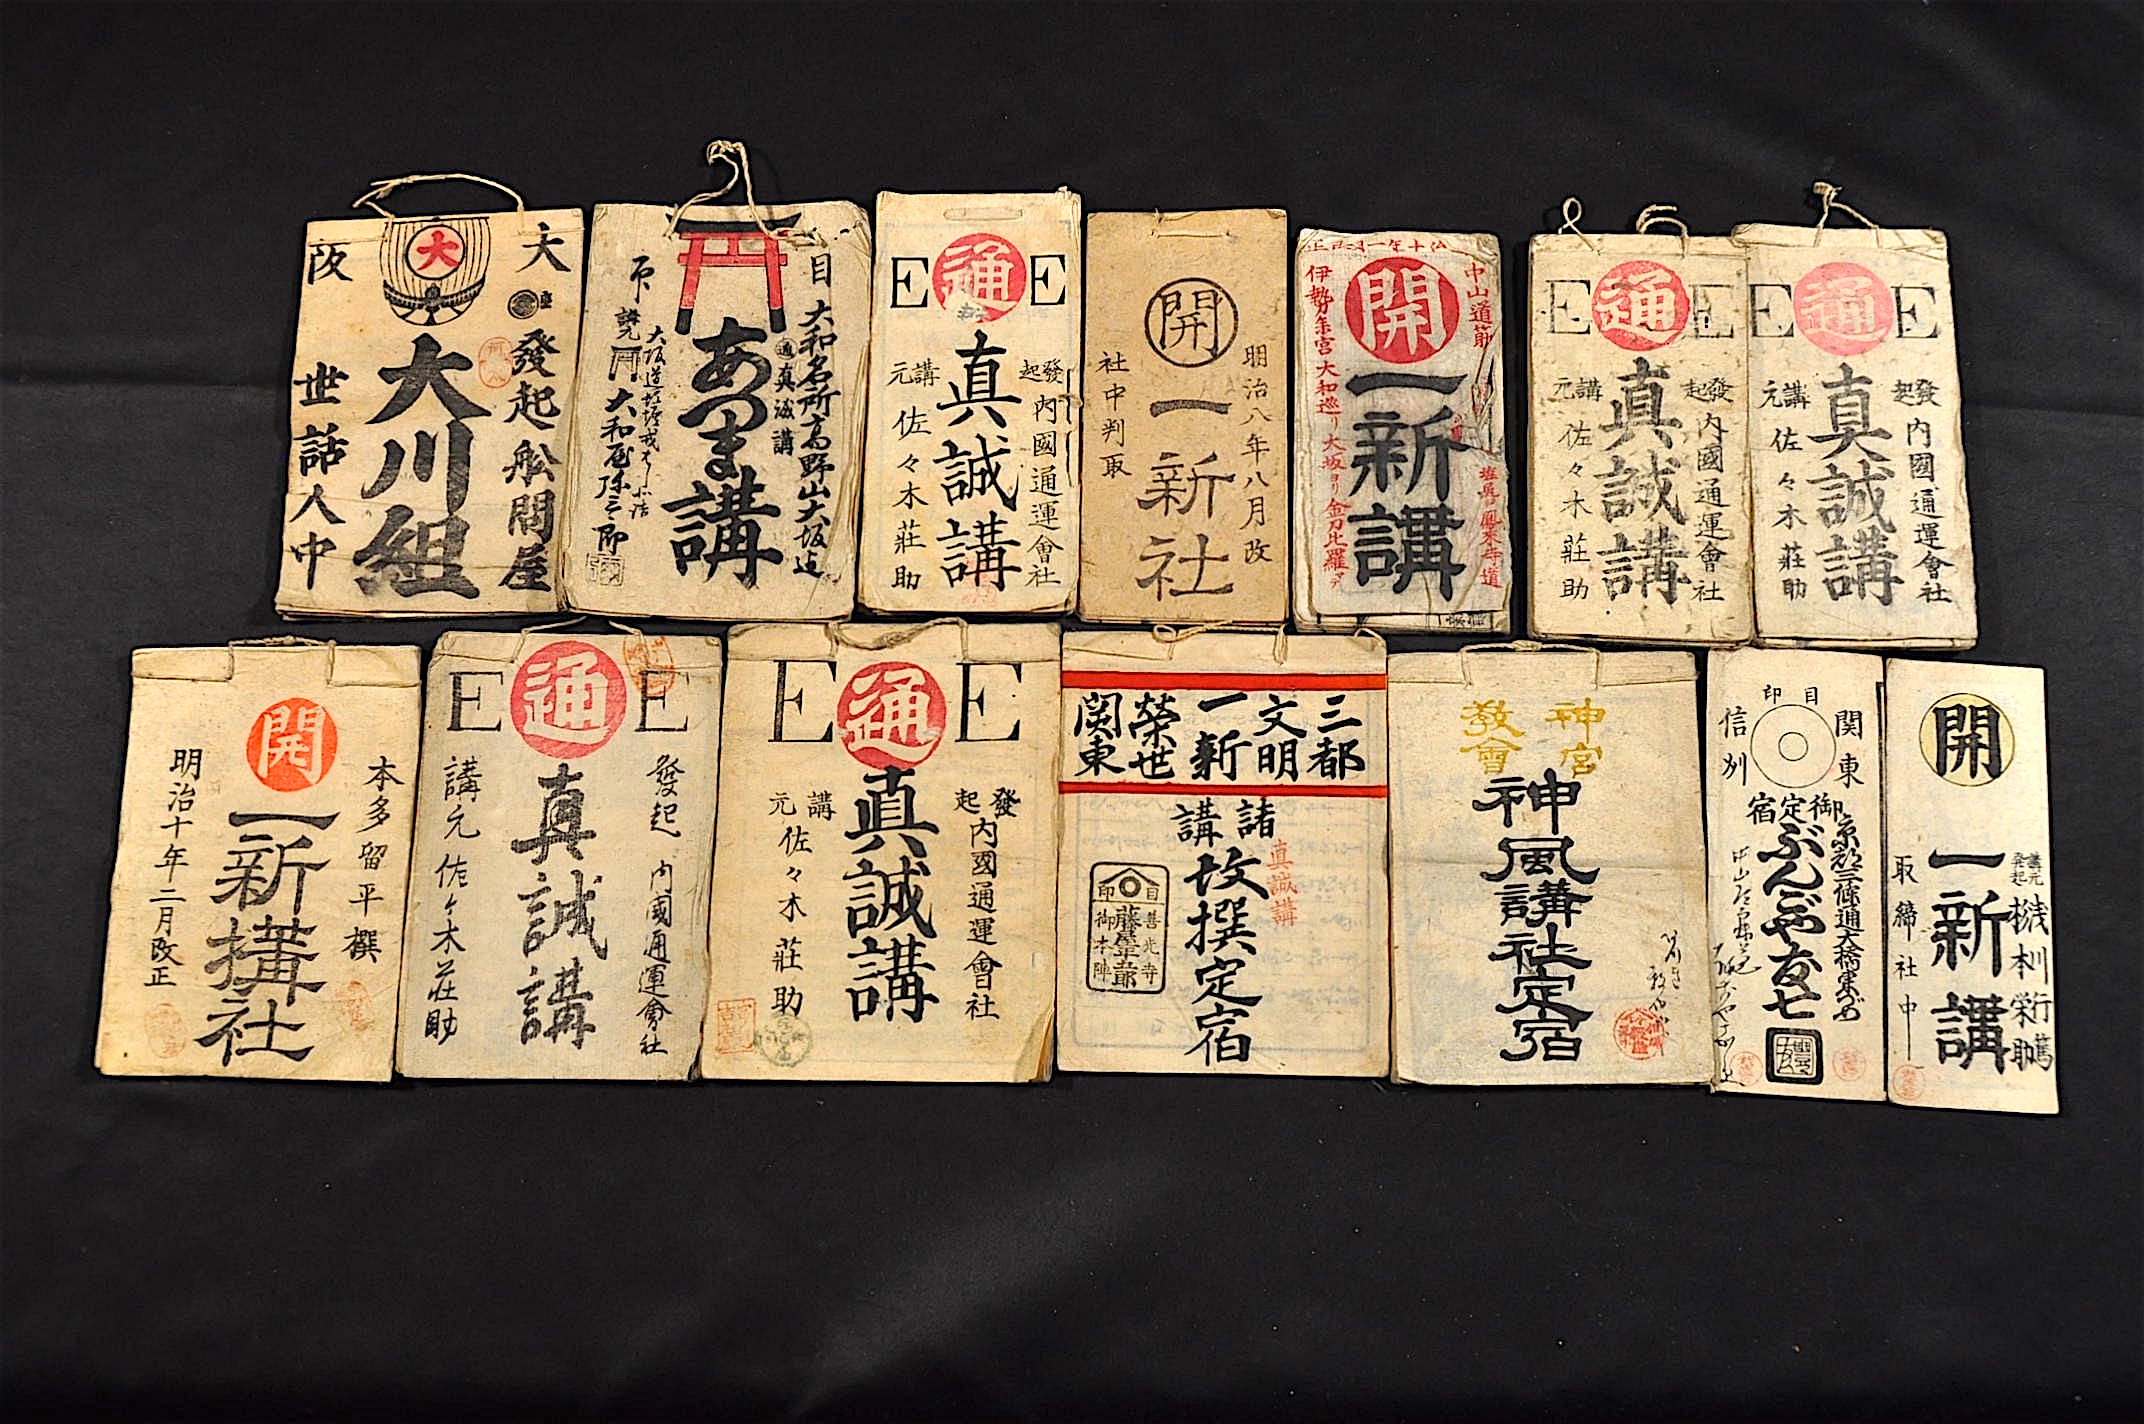 大
阪
大
發起 船問屋
大川組
世話人中
目
印
大和名所高野山大坂迄
真誠講
あつま講
講元
E 通 E
發起 内國通運會社
真誠講
講元 佐々木莊助
開
明治八年八月改
一新社
社中判取
中山道筋
開
一新講
伊勢参宮大和巡リ大坂ヨリ金刀比羅マデ
E 通 E
發起 内國通運會社
真誠講
講元 佐々木莊助
E 通 E
發起 内國通運會社
真誠講
講元 佐々木莊助
開
本多留平撰
一新講社
明治十年二月改正
E 通 E
發起 内國通運會社
真誠講
講元 佐々木莊助
E 通 E
發起 内國通運會社
真誠講
講元 佐々木莊助
三都
文明
一新
榮世
関東
諸講
真誠講
改撰定宿
目印
善光寺
藤屋平五郎
御本陣
神宮
教會
神風講社定宿
目印
関東
信州
御定宿
京都三條通大橋東詰
ぶんごや友七
開
講元
發起
一新講
取締社中